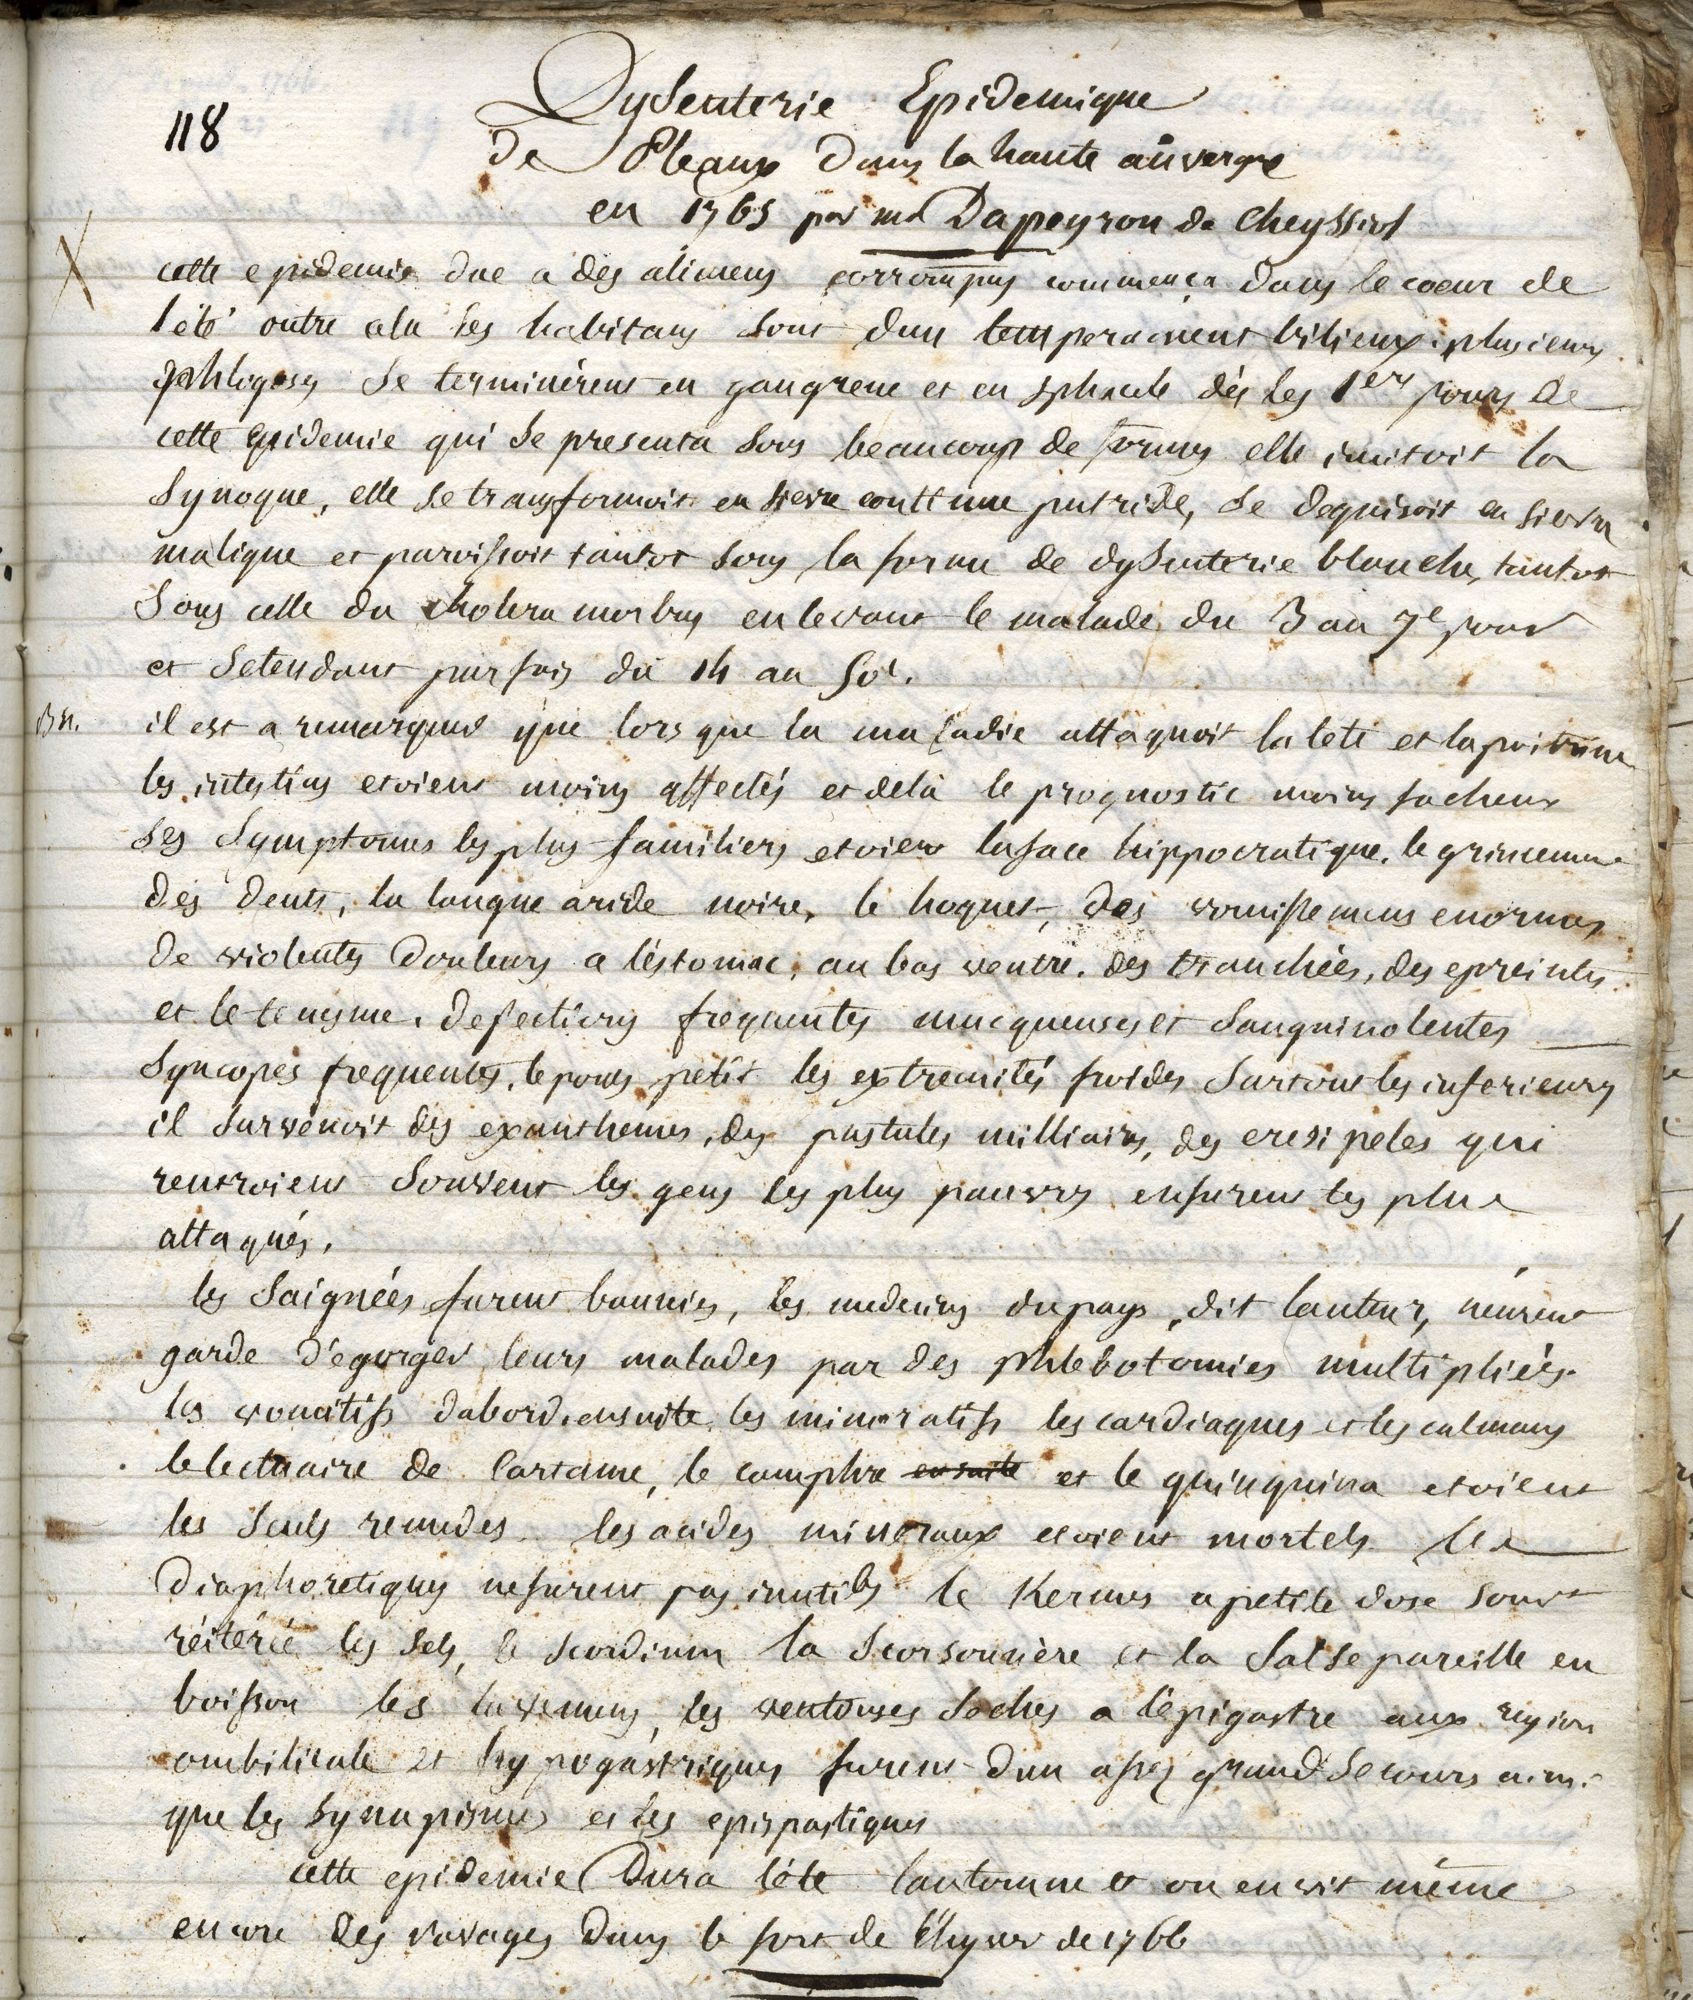 118
Dysenterie Epidemique
de Pleaux dans la haute auvergne
en 1765 par mr Dapeyron de Cheyssiol
cette epidemie due a des alimens corrompus commença dans le coeur de
l'été outre cela les habitans sont d'un temperament bilieux. plusieurs
phlogoses se terminérent en gangrene et en sphacele dés les 1ers jours de
cette epidemie qui se presenta sous beaucoup de formes elle imitoit la
Synoque, elle se transformoit en fievre continue putride, se deguisoit en fievre
maligne et paroissoit tantot sous la forme de dysenterie blanche, tantot
Sous celle du cholera morbus enlevant le malade du 3 au 7e jour
et setendant par fois du 14 au
il est a remarquer que lors que la maladie attaquoit la tete et la poitrine
les intestins etoient moins affectés et delà le prognostic moins facheux
Les Symptomes les plus familiers etoient la face hippocratique. le grincement
des dents, la langue aride noire, le hoquet, des vomissemens enormes
de violentes douleurs a léstomac, au bas ventre. des tranchées, des epreintes
et le tenesme. dejections frequentes muqueuses et Sanguinolentes
Syncopes frequentes. le pouls petit les extremités froides Surtout les inferieures
il Survenoit des exanthemes, des pustules milliaires, des eresipeles qui
rentroient Souvent les gens les plus pauvres en furent les plus
attaqués.
les Saignées furent bannies, les medecins du pays, dit lauteur, n'eurent
garde d'egorger leurs malades par des phlebotomies multipliées.
les vomitifs dabord. ensuite les minoratifs les cardiaques et les calmans
lelectuaire de Cartame, le camphre ensuite et le quinquina etoient
les Seuls remedes. les acides mineraux etoient mortels les
Diaphoretiques ne furent pas inutiles le Kermes a petite dose souvt
réiterée les Sels, le Scordium la Scorsonnère et la Salsepareille en
boisson les lavemens, les ventouses Seches a lépigastre aux region
ombilicale et hypogastriques furent d'un assez grand Secours ainsi
que les Synapismes et les epispastiques
cette epidemie Dura l'été lautomne et on en vit même
encore des ravages Dans le fort de l'hyver de 1766